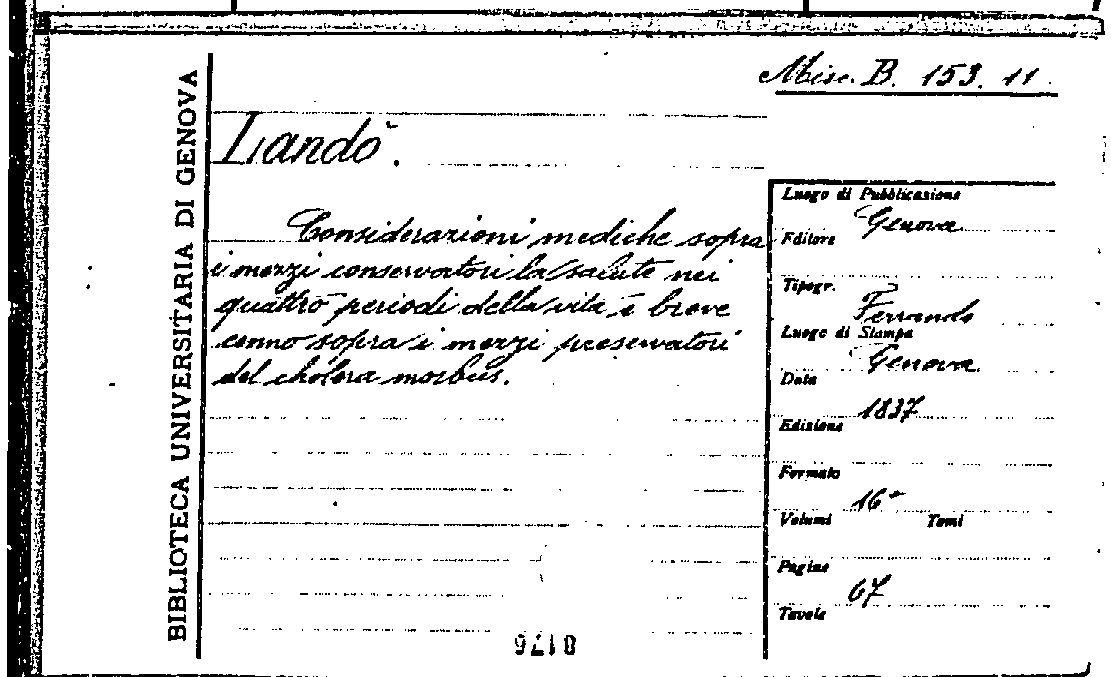 Misc. B. 153. 11.
BIBLIOTECA UNIVERSITARIA DI GENOVA
Landò.
Considerazioni mediche sopra
i mezzi conservatori la salute nei
quattro periodi della vita e breve
cenno sopra i mezzi preservatori
del cholera morbus.
Luogo di Pubblicazione
Genova
Editore
Tipogr.
Ferrando
Luogo di Stampa
Genova
Data
1837
Edizione
Formato
16°
Volumi Tomi
Pagine
67
Tavole
8176